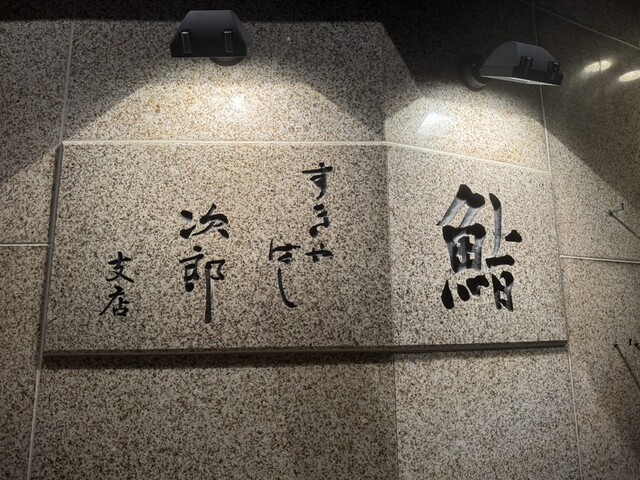 鮨
すきや
ばし
次郎
支店